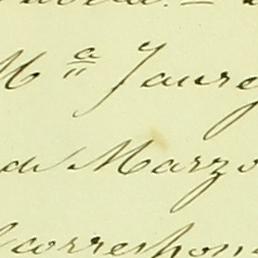 Mª Jaure
de Marzo
correspon